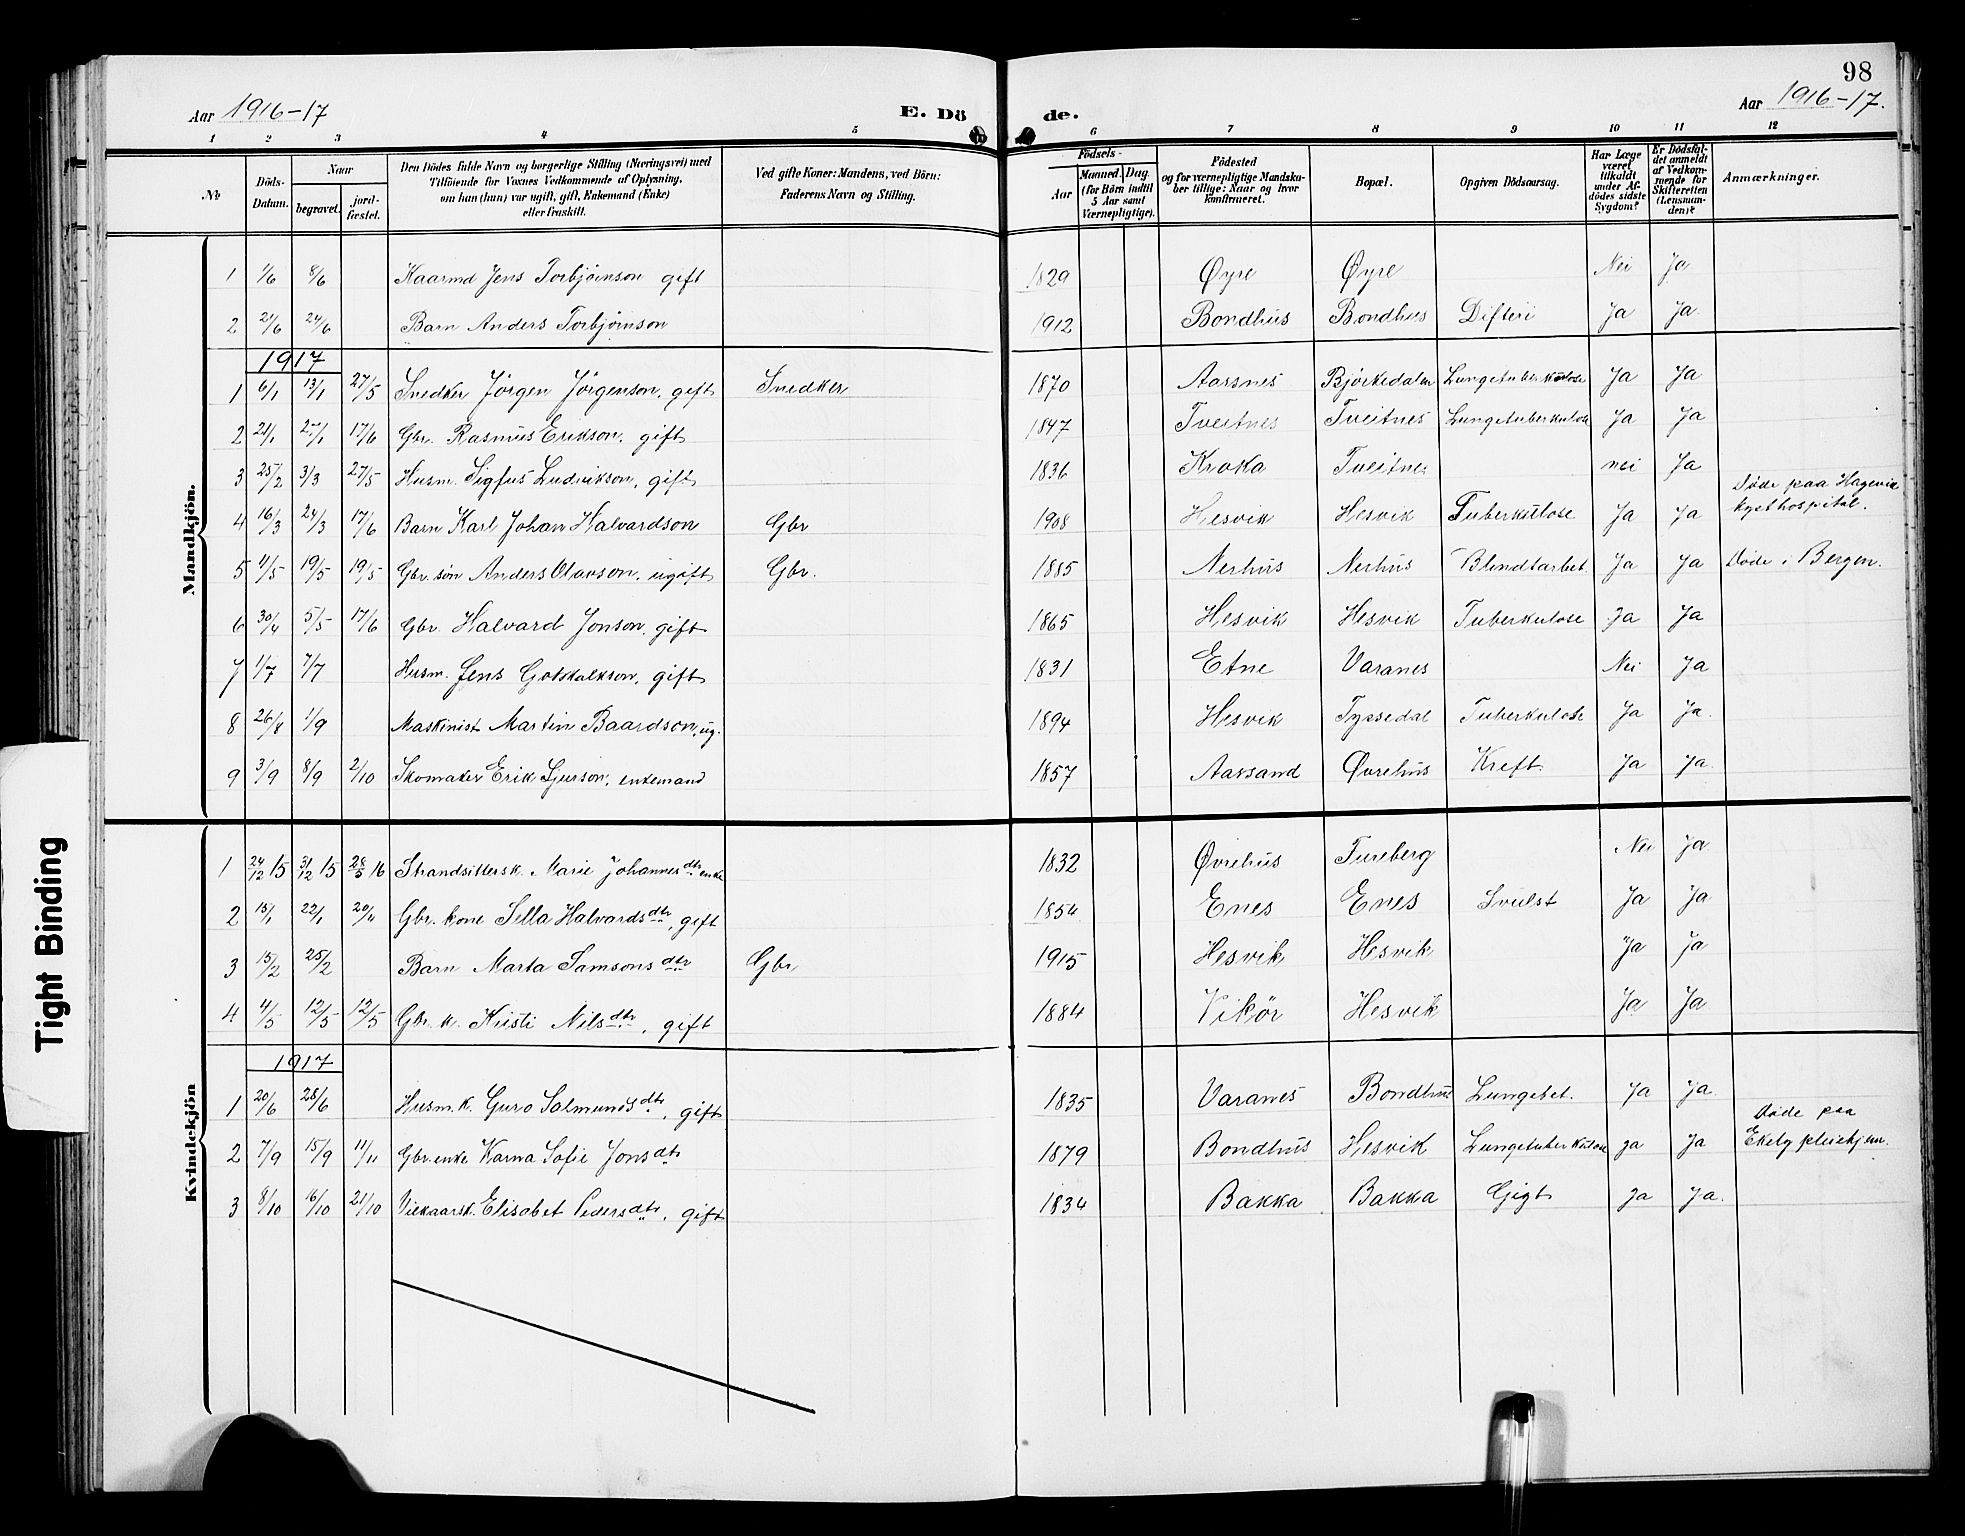 98
Aar 1916-17
E. Dö
de.
Aar 1916-17.
1 2 3 4 5 6 7 8 9 10 11 12
№
Döds-Datum.
Naar
begravet.
jord-fæstet.
Den Dödes fulde Navn og borgerlige Stilling (Næringsvei) med
Tilföiende for Voxnes Vedkommende af Oplysning,
om han (hun) var ugift, gift, Enkemand (Enke)
eller fraskilt.
Ved gifte Koner: Mandens, ved Börn:
Faderens Navn og Stilling.
Födsels-
Aar
Maaned. Dag.
(for Börn indtil
5 Aar samt
Værnepligtige).
Födested
og for værnepligtige Mandska-
ber tillige: Naar og hvor
konfirmeret.
Bopæl.
Opgiven Dödsaarsag.
Har Læge
været
tilkaldt
under Af-
dödes sidste
Sygdom?
Er Dödsfal-
det anmeldt
af Vedkom-
mende for
Skifteretten
(Lensman-
den)?
Anmærkninger.
Mandkjön.
1 1/6 8/6 Kaarmd Jens Torbjørnson gift 1829 Øyre Øyre Nei Ja
2 21/6 24/6 Barn Anders Torbjørnson 1912 Bondhus Bondhus Difteri Ja Ja
1917
1 6/1 13/1 27/5 Snedker Jörgen Jörgenson, gift Snedker 1870 Aarsnes Bjørkedalen Lungetuberkulose Ja Ja
2 21/1 27/1 17/6 Gbr. Rasmus Erikson, gift 1847 Tveitnes Tveitnes Lungetuberkulose Ja Ja
3 25/2 3/3 27/5 Husm. Sigfus Ludvikson, gift 1836 Kroka Tveitnes nei Ja
4 16/3 24/3 17/6 Barn Karl Johan Halvardson Gbr 1908 Hesvik Hesvik Tuberkulose Ja Ja Døde paa Hagevik
kysthospital.
5 4/5 19/5 19/5 Gbr. søn Anders Olavson, ugift Gbr. 1885 Nerhus Nerhus Blindtarbet. Ja Ja Døde i Bergen.
6 30/4 5/5 17/6 Gbr. Halvard Jonson, gift 1865 Hesvik Hesvik Tuberkulose Ja Ja
7 1/7 7/7 Husm. Jens Gotskalkson, gift 1831 Etne Varanes Nei Ja
8 26/8 1/9 Maskinist Martin Baardson, ug. 1894 Hesvik Tyssedal Tuberkulose Ja Ja.
9 3/9 8/9 2/10 Skomaker Erik Sjurson, enkemand 1857 Aarsand Øvrehus Kreft. Ja Ja.
Kvindekjön
1 24/12 15 31/12 15 28/5 16 Strandsittersk. Marie Johannesdtr enke 1832 Øvrehus Fureberg Nei Ja
2 15/1 22/1 20/4 Gbr. kone Sella Halvardsdtr, gift 1854 Enes Enes Svulst Ja Ja
3 15/2 25/2 Barn Marta Samsonsdtr Gbr 1915 Hesvik Hesvik Ja Ja
4 4/5 12/5 12/5 Gbr. k. Kristi Nilsdtr, gift 1884 Vikör Hesvik Ja Ja
1917
1 20/6 28/6 Husm. k. Guro Salmundsdtr, gift 1835 Varanes Bondhus Lungebet. Ja Ja.
2 7/9 15/9 11/11 Gbr. enke Karna Sofie Jonsdtr 1879 Bondhus Hesvik Lungetuberkulose Ja Ja Døde paa
Ekely pleiehjem.
3 8/10 16/10 21/10 Vilkaarsk. Elisabet Pedersdtr, gift 1834 Bakka Bakka Gigt Ja Ja.
Tight Binding